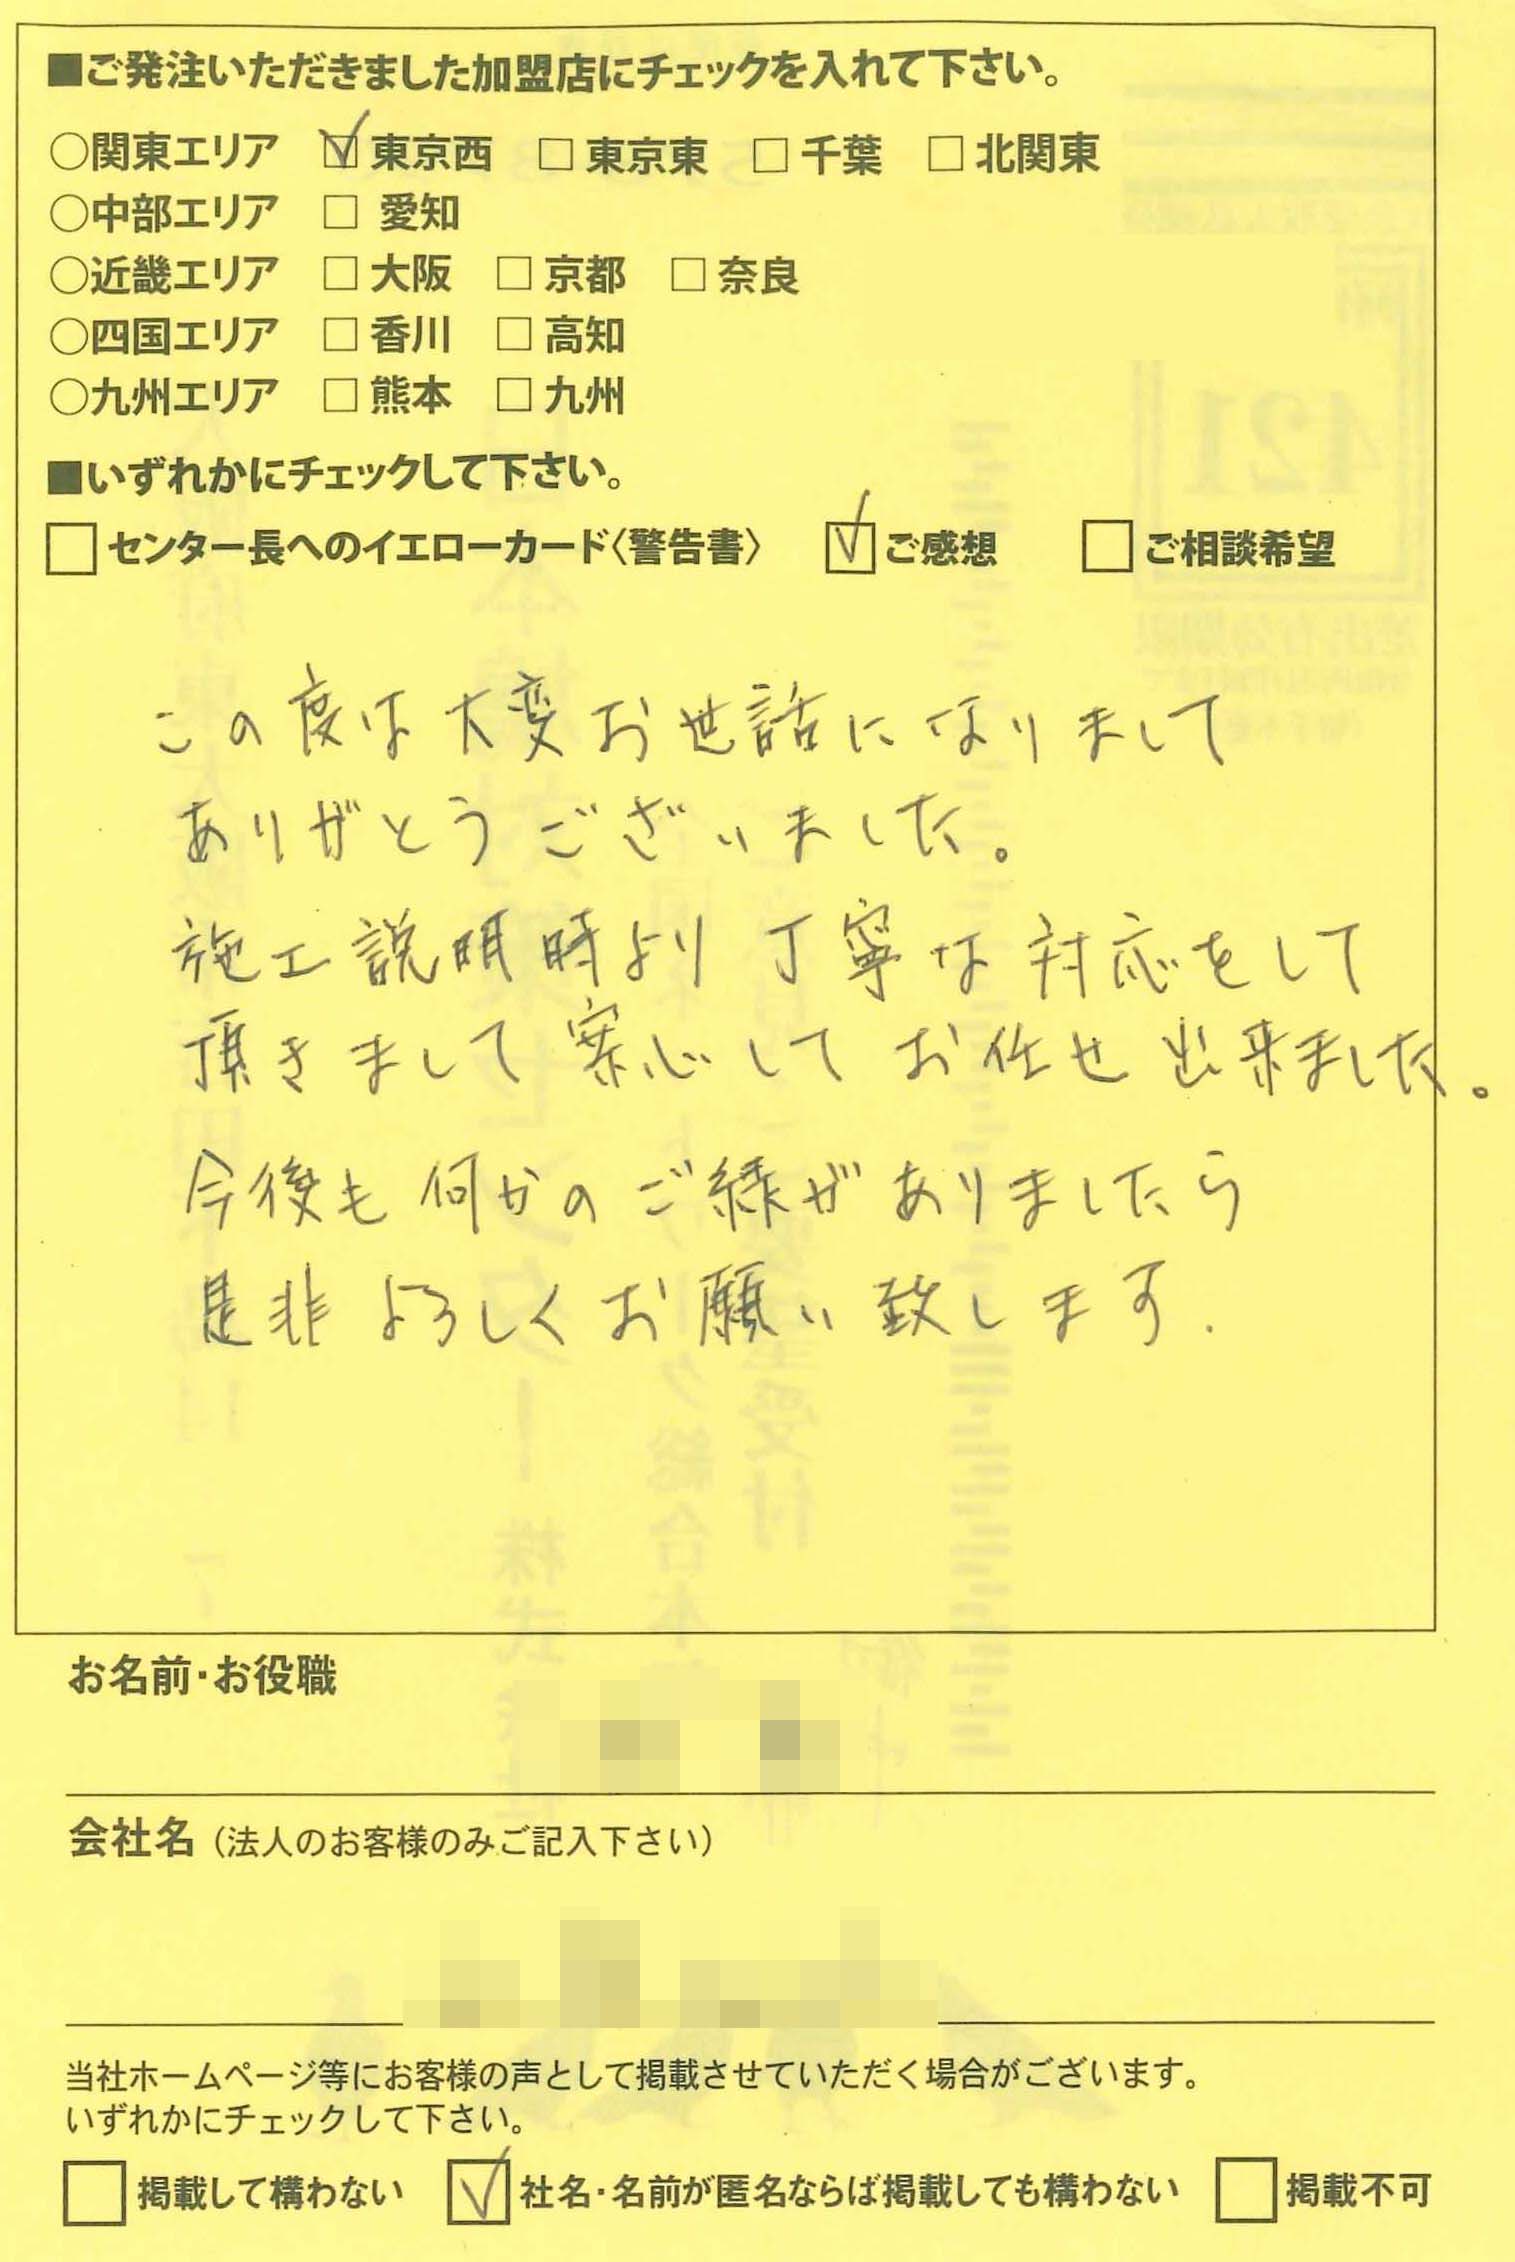 ■ご発注いただきました加盟店にチェックを入れて下さい。
○関東エリア ☑東京西 □東京東 □千葉 □北関東
○中部エリア □愛知
○近畿エリア □大阪 □京都 □奈良
○四国エリア □香川 □高知
○九州エリア □熊本 □九州
■いずれかにチェックして下さい。
□センター長へのイエローカード〈警告書〉 ☑ご感想 □ご相談希望
この度は大変お世話になりまして
ありがとうございました。
施工説明時より丁寧な対応をして
頂きまして案心してお任せ出来ました。
今後も何かのご縁がありましたら
是非よろしくお願い致します.
お名前・お役職
会社名（法人のお客様のみご記入下さい）
当社ホームページ等にお客様の声として掲載させていただく場合がございます。
いずれかにチェックして下さい。
□掲載して構わない ☑社名・名前が匿名ならば掲載しても構わない □掲載不可